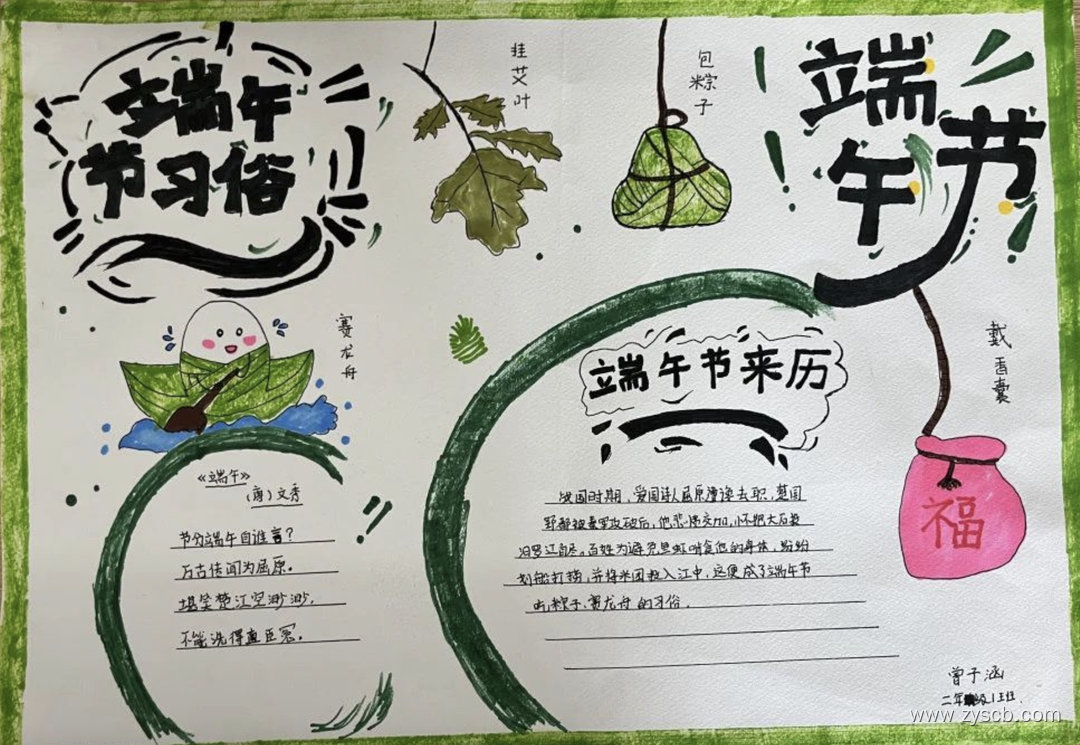 端午
节习俗
挂艾叶
包粽子
端午节
赛龙舟
戴香囊
福
端午节来历
《端午》
(唐)文秀
节分端午自谁言？
万古传闻为屈原。
堪笑楚江空渺渺，
不能洗得直臣冤。
战国时期，爱国诗人屈原遭谗去职，楚国
郢都被秦军攻破后，他悲愤交加，怀抱大石投
汨罗江自尽。百姓为避免鱼虾啃食他的身体，纷纷
划船打捞，并将米团投入江中，这便成了端午节
吃粽子、赛龙舟的习俗。
曾子涵
二年级1班
www.zyscb.com